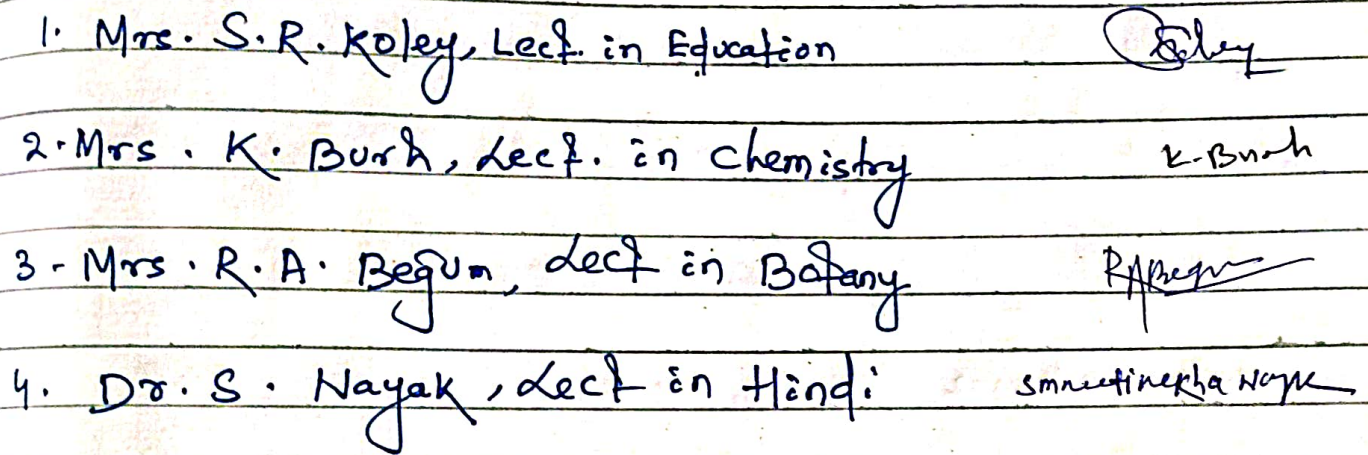 1. Mrs. S. R. Koley, Lect. in Education
2. Mrs. K. Burh, Lect. in Chemistry K. Burh
3 - Mrs. R. A. Begum, Lect in Botany RABegum
4. Dr. S. Nayak, Lect in Hindi